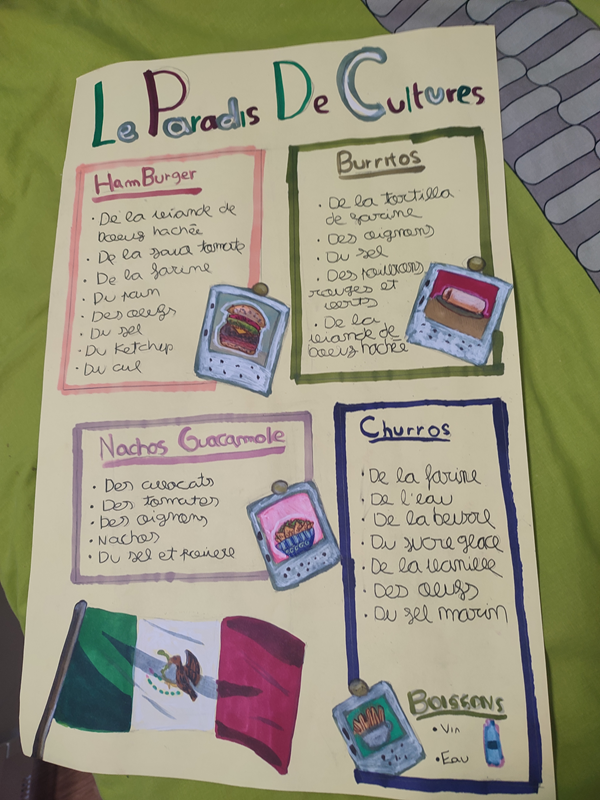 Le Paradis De Cultures
HamBurger
• De la viande de
boeuf hachée
• De la sauce tomate
• De la farine
• Du pain
• Des oeufs
• Du sel
• Du Ketchup
• Du cul
Burritos
• De la tortilla
de farine
• Des oignons
• Du sel
• Des poivrons
rouges et
verts
• De la
viande de
boeuf hachée
Nachos Guacamole
• Des avocats
• Des tomates
• Des oignons
• Nachos
• Du sel et poivre
Churros
• De la farine
• De l'eau
• De la beurre
• Du sucre glace
• De la vanille
• Des oeufs
• Du sel marin
Boissons
• Vin
• Eau